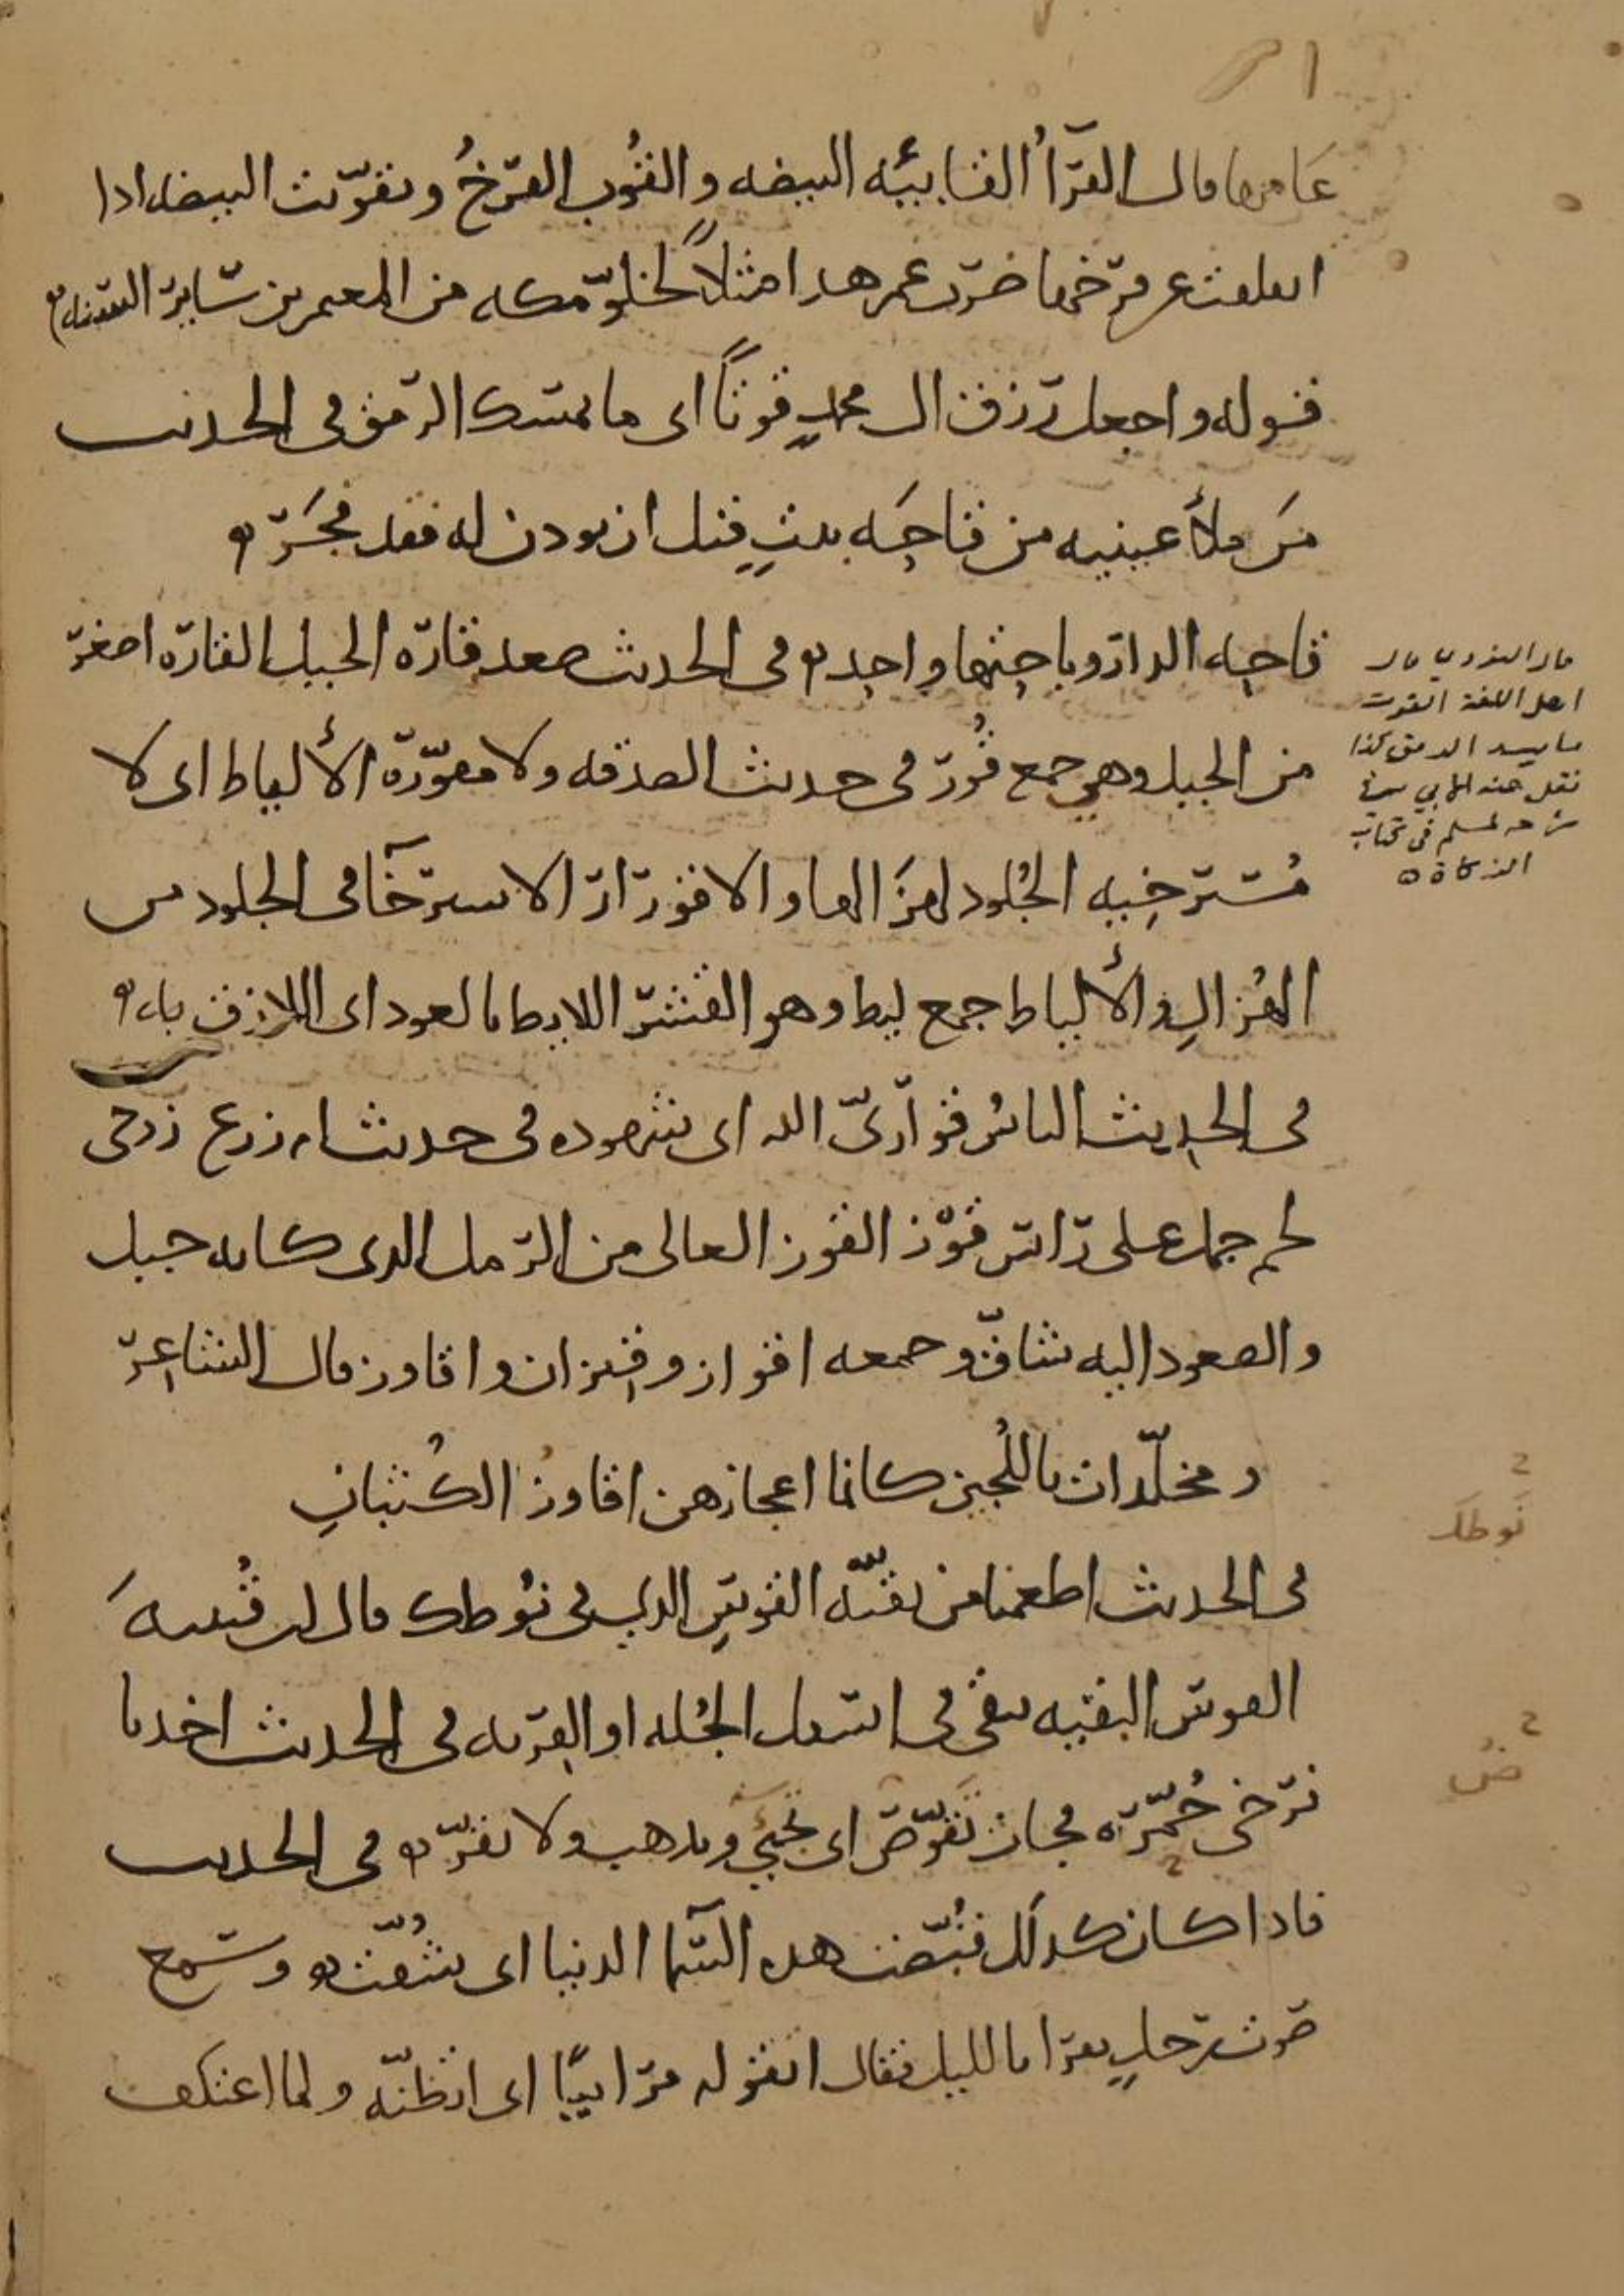 عامها قال الفرّاءُ القابيَه البيضه والقُوب الفرخُ وتقوّبت البيضه اذا
انفلقت عن فرخها ضرب عمر هذا مثلاً لخلوّ مكه من المعمرين سَاير السنه
قوله واجعل رزق ال محمدٍ قوتًا اى ما يمسك الرمق فى الحديث
مَن ملأ عينيه من قاحَه بيتٍ قبل ان يوذن له فقد فجَرَ
قاحه الدار وباحتها واحد فى الحديث صعد قارَه الجبل القارَه اصغر
من الجبل وهي جمع قُورٌ فى حديث الصدقه ولا مقوَرّة الألياط اى لا
مُسترخِيه الجُلود لهزَالها والاقورَار الاسترخَا فى الجلود من
الهُزالِ والألياط جمع ليط وهو القشر اللايط بالعود اى اللازق به
فى الحديث الناس قوَارىّ الله اى شهوده فى حديث ام زرع زوجى
لحم جمل على رَاس قَوْز القوز العالى من الرّمل الذى كانه جبل
والصعود اليه شاقّ وجمعه اقواز وقِيزان واقاوز قال الشاعر
ومخلّدات باللُجين كانما اعجازهن اقاوزُ الكُثبانِ
فى الحديث اطعمنا من بقيّه القوسِ الذي فى نَوطك قال ابن قُتيبهَ
القوس البقيه تبقى فى اسفل الجُله او القربه فى الحديث اخذنا
فرخى حُمّرَه فجات تَقَوّضُ اى تجيُ وتذهب ولا تقرّ فى الحديث
فاذا كان كذلك قُيّضت هذه السّما الدنيا اى شُقّت وسَمع
صوت رَجلٍ يقرا بالليل فقال اتقوله مُرَاييًا اى اتظنّه ولما اعتكف
قال النووي قال
اهل اللغة القوت
ما يسد الرمق كذا
نقل عنه الأبي في
شرحه لمسلم في كتاب
الزكاة
نَوطكَ
ضُ